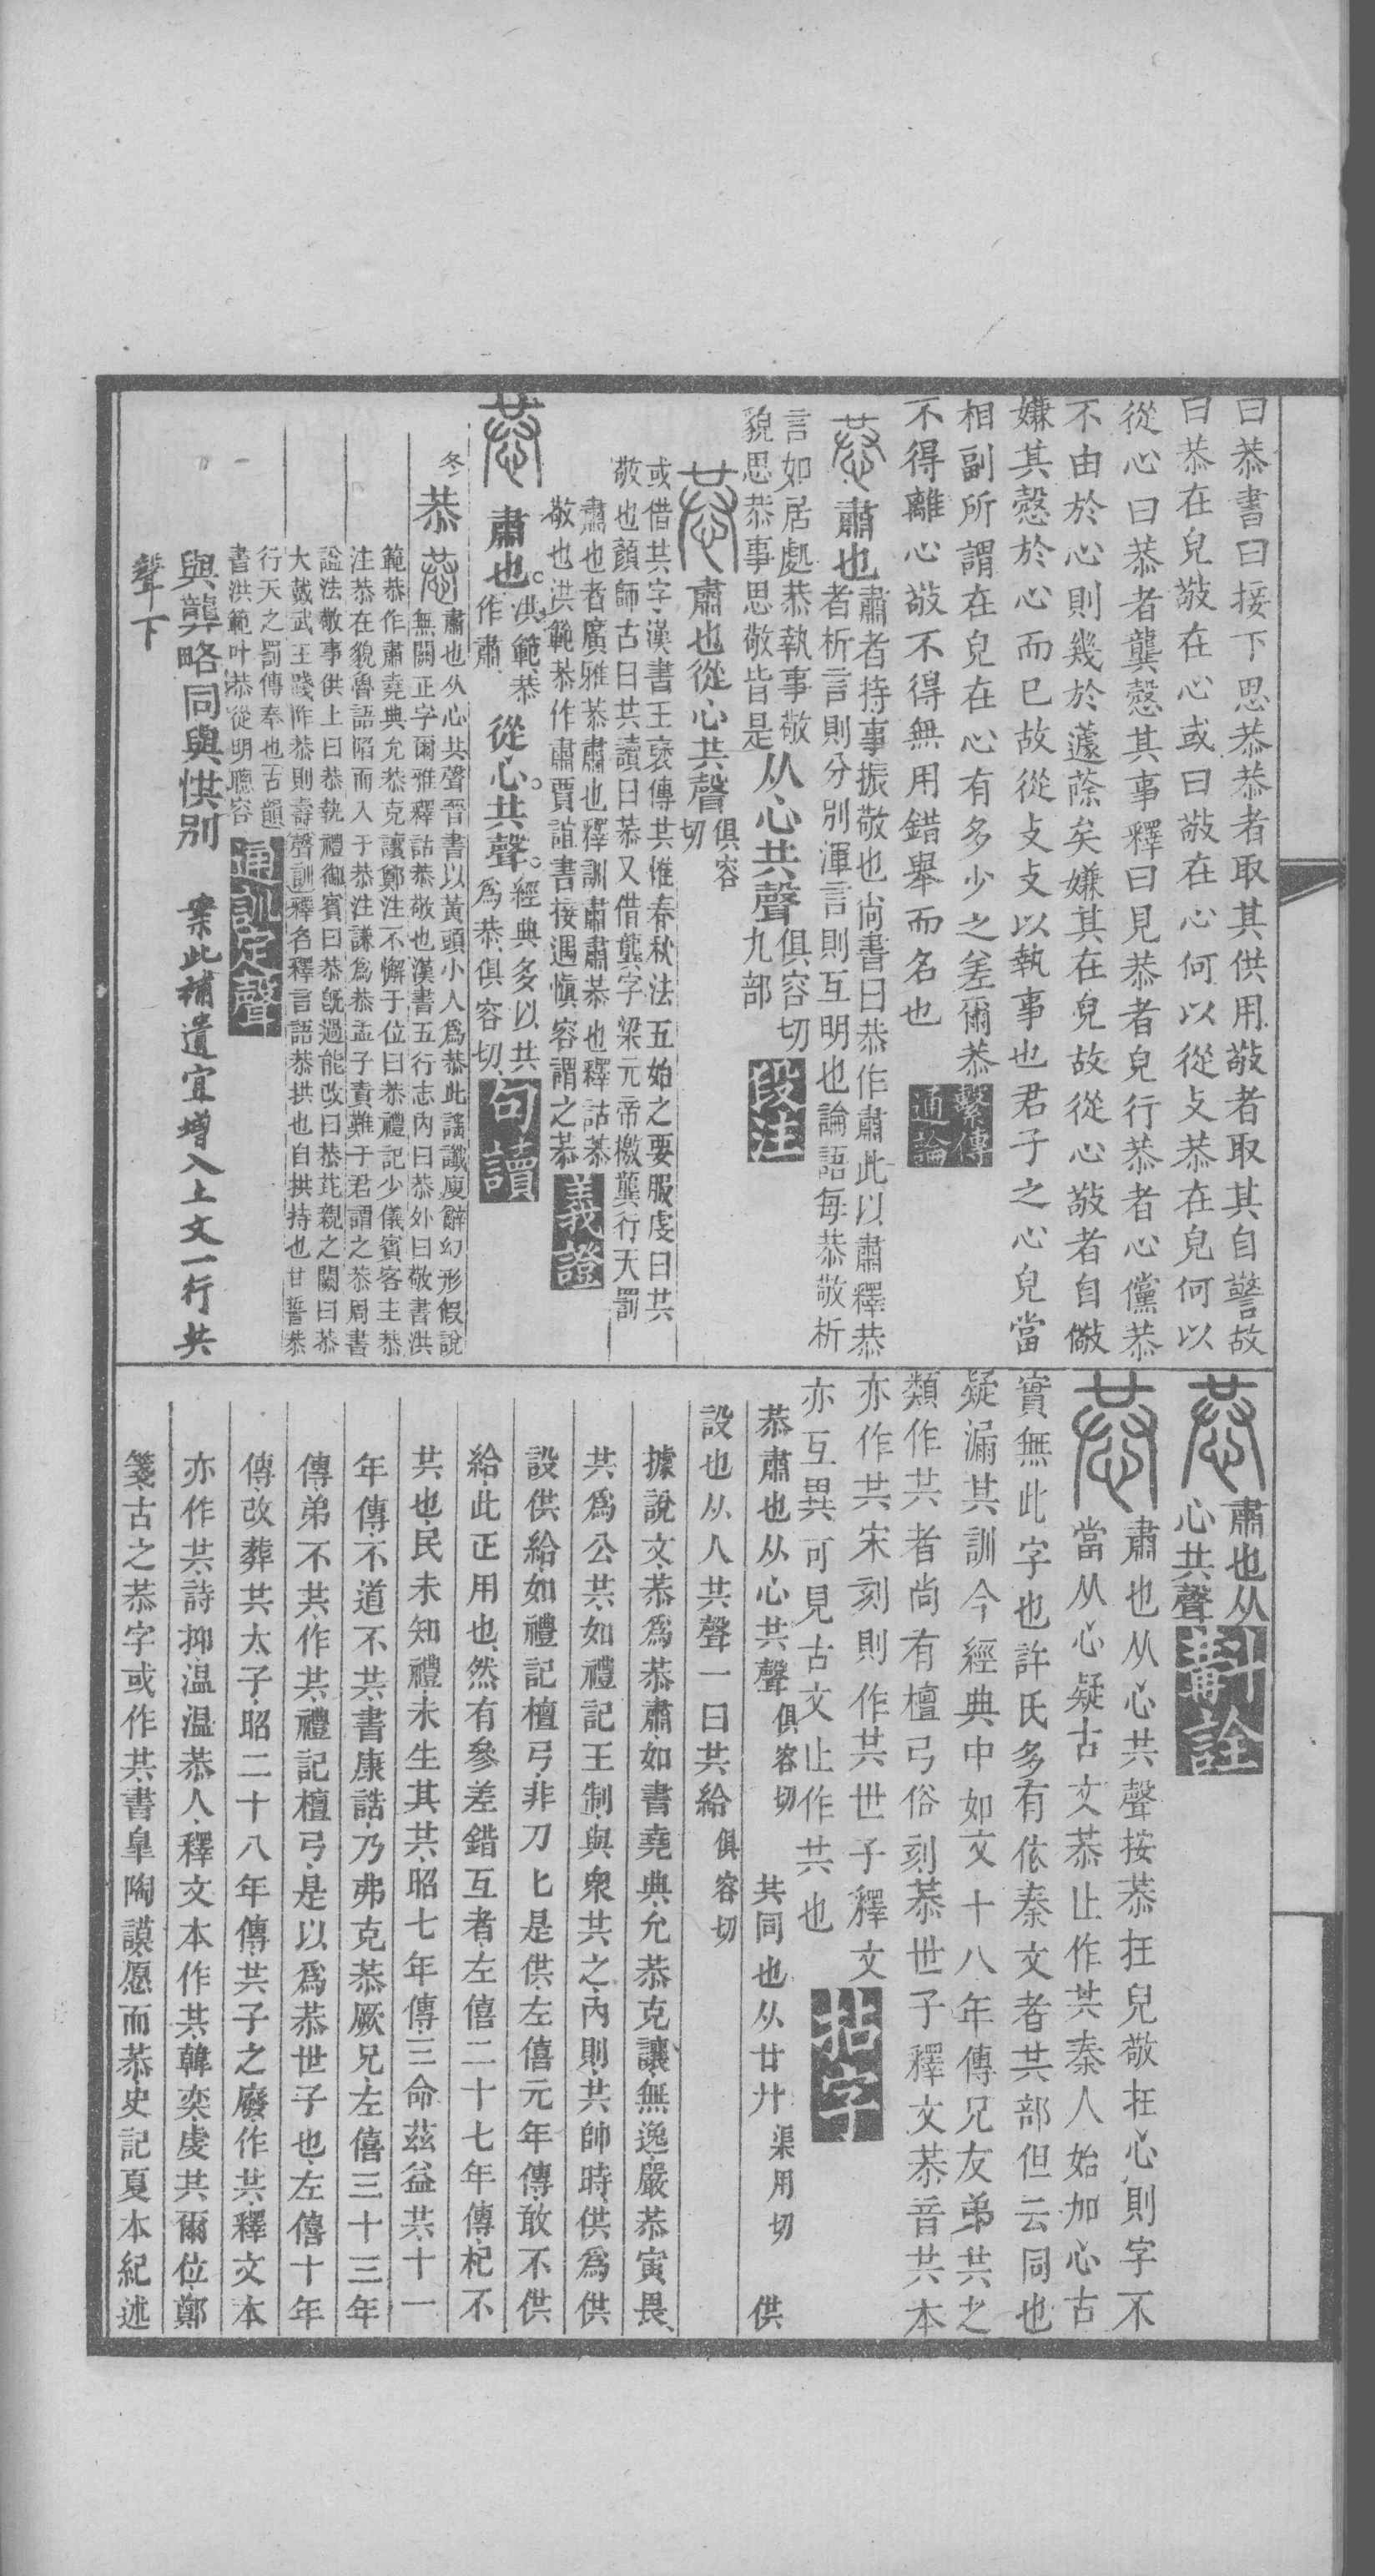 曰恭書曰接下思恭恭者取其供用敬者取其自警故
曰恭在皃敬在心或曰敬在心何以從攴恭在皃何以
從心曰恭者龔愨其事釋曰見恭者皃行恭者心儻恭
不由於心則幾於蘧蒢矣嫌其在皃故從心敬者自儆
嫌其愨於心而已故從攴攴以執事也君子之心皃當
相副所謂在皃在心有多少之差爾恭
不得離心敬不得無用錯舉而名也
繫傳
通論
肅也
肅者持事振敬也尚書曰恭作肅此以肅釋恭
者析言則分別渾言則互明也論語每恭敬析
言如居處恭執事敬
貌思恭事思敬皆是
从心共聲
俱容切
九部
段注
肅也從心共聲
俱容
切
或借共字漢書王襃傳共惟春秋法五始之要服虔曰共
敬也顏師古曰共讀曰恭又借龔字梁元帝檄龔行天罰
肅也者廣雅恭肅也釋訓肅肅恭也釋詁恭
敬也洪範恭作肅賈誼書接遇愼容謂之恭
義證
肅也
洪範恭
作肅
從心共聲
經典多以共
爲恭俱容切
句讀
恭
肅也从心共聲晉書以黃頭小人爲恭此謠讖廋辭幻形假說
無關正字爾雅釋詁恭敬也漢書五行志內曰恭外曰敬書洪
範恭作肅堯典允恭克讓鄭注不懈于位曰恭禮記少儀賓客主恭
注恭在貌魯語陷而入于恭注謙爲恭孟子責難于君謂之恭周書
謚法敬事供上曰恭執禮御賓曰恭旣過能改曰恭芘親之闕曰恭
大戴武王踐阼恭則壽聲訓釋名釋言語恭拱也自拱持也甘誓恭
行天之罰傳奉也古韻
書洪範叶恭從明聰容
通訓定聲
與龔略同與愩別
案此補遺宜增入上文一行共
聲下
肅也从
心共聲
斠詮
肅也从心共聲按恭在皃敬在心則字不
當从心疑古文恭止作共秦人始加心古
實無此字也許氏多有依秦文者共部但云同也
疑漏其訓今經典中如文十八年傳兄友弟共之
類作共者尚有檀弓俗刻恭世子釋文恭音共本
亦作共宋刻則作共世子釋文
亦互異可見古文止作共也
拈字
恭肅也从心共聲俱容切 共同也从廿廾渠用切 供
設也从人共聲一曰共給俱容切
據說文恭爲恭肅如書堯典允恭克讓無逸嚴恭寅畏
共爲公共如禮記王制與衆共之內則共帥時供爲供
設供給如禮記檀弓非刀匕是供左僖元年傳敢不供
給此正用也然有參差錯互者左僖二十七年傳杞不
共也民未知禮未生其共昭七年傳三命茲益共十一
年傳不道不共書康誥乃弗克恭厥兄左僖三十三年
傳弟不共作共禮記檀弓是以爲恭世子也左僖十年
傳改葬共大子昭二十八年傳共子之廢作共釋文本
亦作共詩抑温温恭人釋文本作共韓奕虔共爾位鄭
箋古之恭字或作共書皐陶謨愿而恭史記夏本紀述